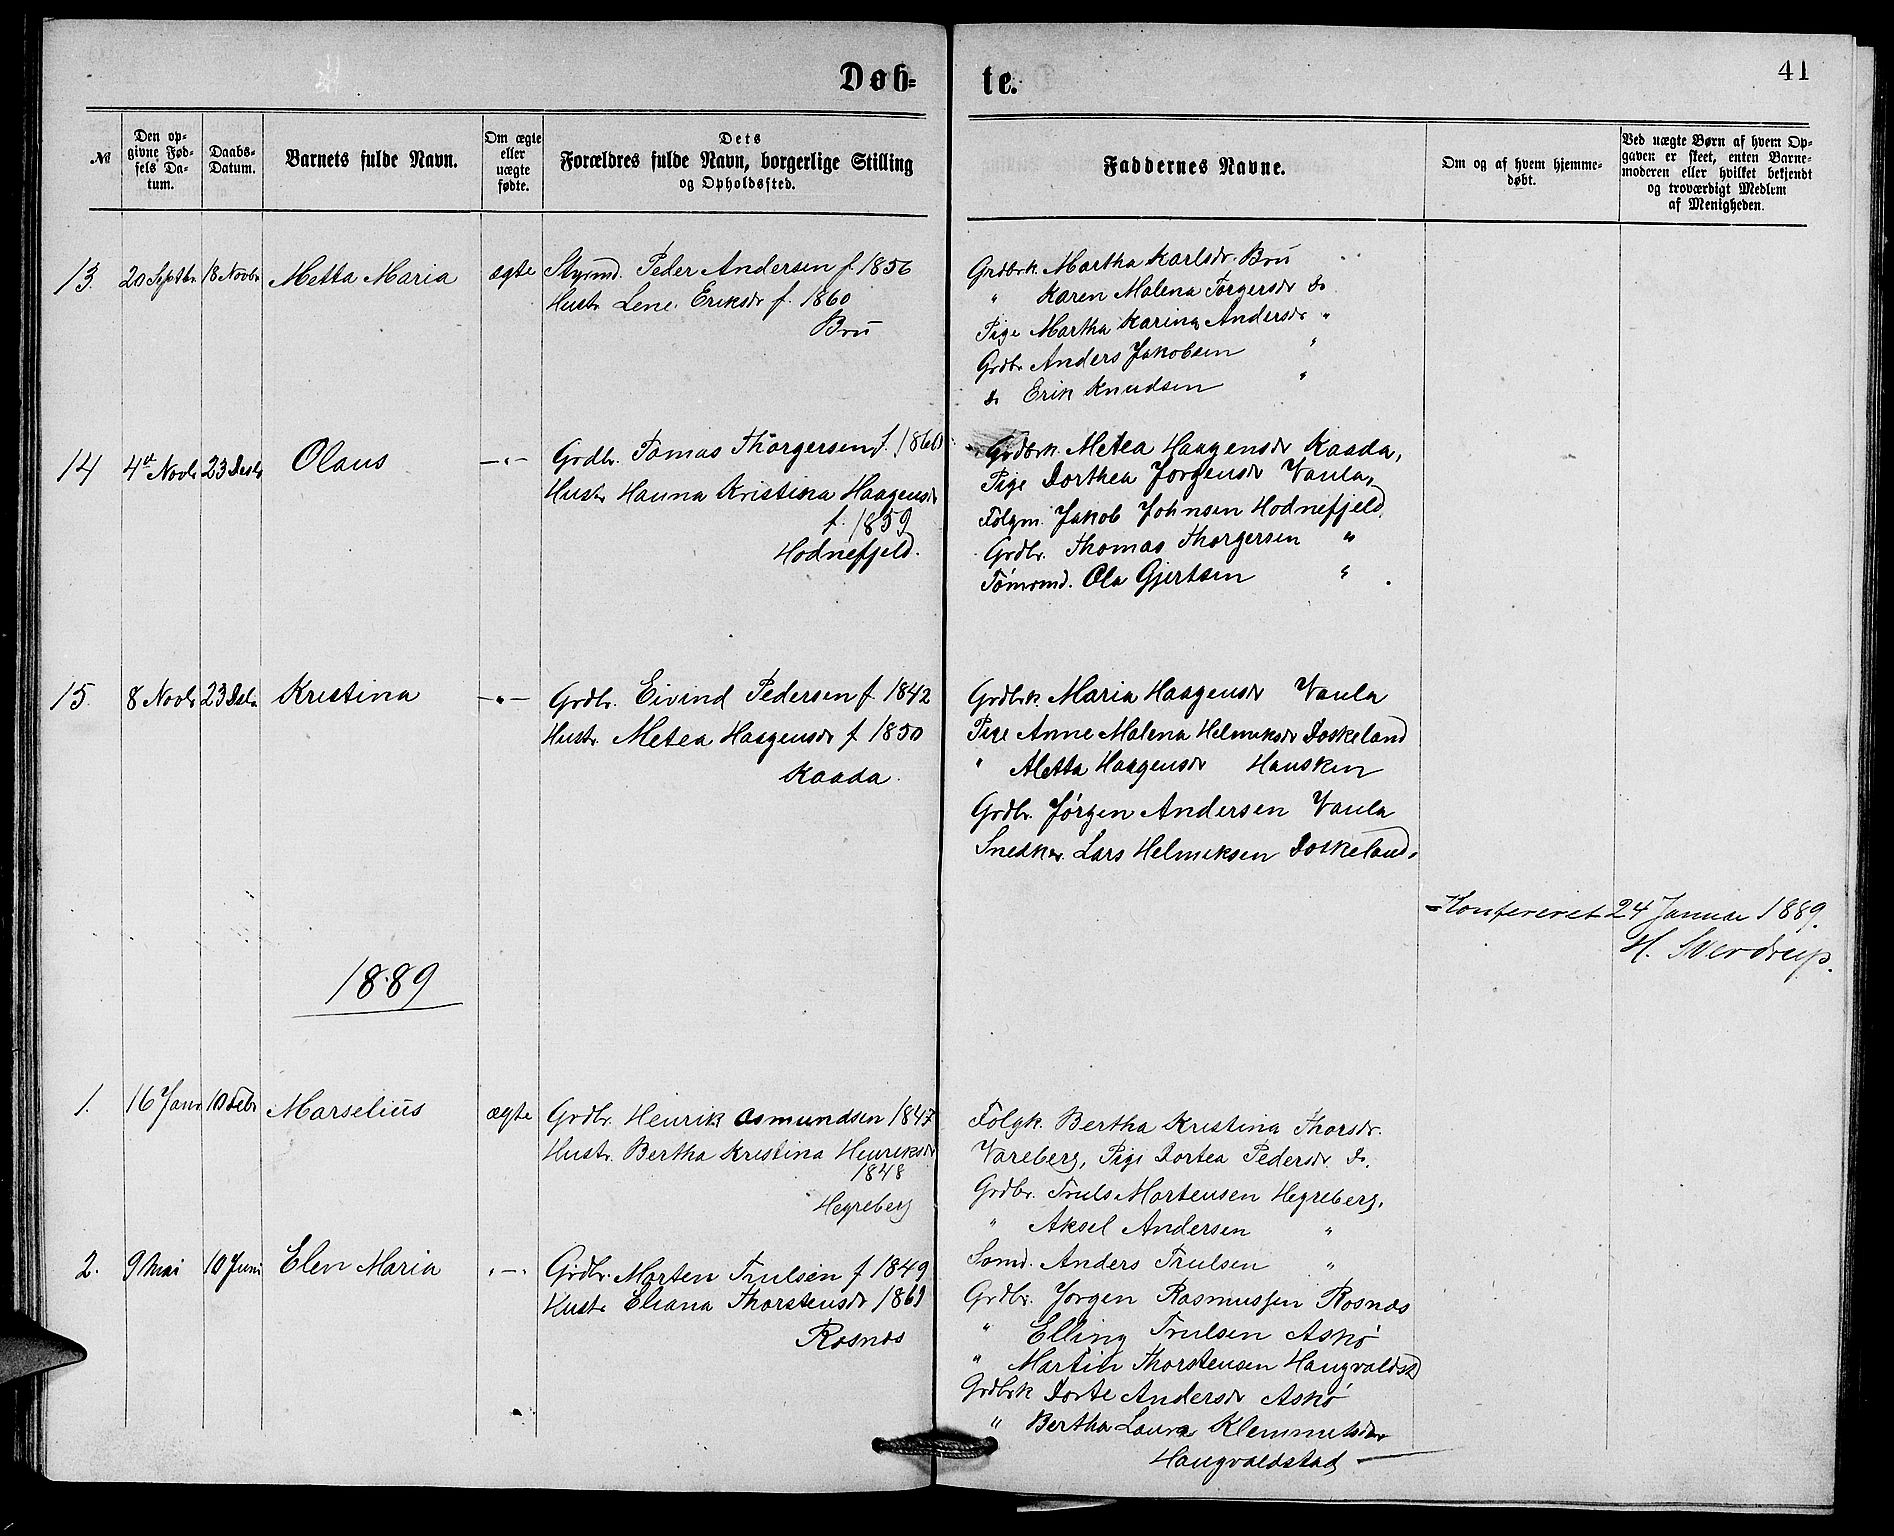 Døb- te. 41
№
Den op-
givne Fød-
sels Da-
tum.
Daabs-
Datum.
Barnets fulde Navn.
Om ægte
eller
uægte
fødte.
Dets
Forældres fulde Navn, borgerlige Stilling
og Opholdssted.
Faddernes Navne.
Om og af hvem hjemme-
døbt.
Ved uægte Børn af hvem Op-
gaven er skeet, enten Barne-
moderen eller hvilket bekjendt
og troværdigt Medlem
af Menigheden.
13. 20 Septbr. 18 Novbr Metta Maria ægte
Styrmd. Peder Andersen f. 1856
Hustr. Lene Eriksdr f. 1860
Bru
Grdbrk. Martha Karlsdr. Bru
" Karen Malena Torgersdr Do
Pige Martha Karina Andersdr "
Grdbr. Anders Jakobsen "
Do Erik Knudsen "
14 4de Novbr 23 Desbr Olaus -"-
Grdbr. Tomas Thorgersen f. 1860
Hustr Hanna Kristina Haagensdr
f. 1859
Hodnefjeld.
Grdbrk. Metea Haagensdr Kaada,
Pige Dorthea Jorgensdr Vaula,
Folgm. Jakob Johnsen Hodnefjeld
Grdbr. Thomas Thorgersen "
Tømrmd. Ola Gjertsen "
15. 8 Novbr 23 Desbr. Kristina -"-
Grdbr. Eivind Pedersen f. 1842
Hustr. Metea Haagensdr f. 1850
Kaada.
Grdbrk. Maria Haagensdr Vaula
Pige Anne Malena Helmiksdr Doskeland
" Aletta Haagensdr Hausken
Grdbr. Jørgen Andersen Vaula
Snedker. Lars Helmiksen Doskeland.
Konfereret 24 Januar 1889.
H. Sverdrup.
1889
1. 16 Janr 10 Febr Marselius ægte
Grdbr. Henrik Asmundsen 1847
Hustr. Bertha Kristina Henriksdr
1848
Hegreberg
Folgk. Bertha Kristina Thorsdr.
Vareberg, Pige Dortea Pedersdr Do.
Grdbr. Truls Mortensen Hegreberg.
" Aksel Andersen "
Somd. Anders Trulsen "
2. 9 Mai 10 Juni Elen Maria "-"
Grdbr. Morten Trulsen f 1849
Hustr Eliana Thorstensdr 1861
Rosnes
Grdbr. Jorgen Rasmussen Rosnes
" Elling Trulsen Askø
" Martin Thorstensen Haugvaldstd
Grdbrk Dorte Andersdr Askø
" Bertha Laura Klemmetsdr
Haugvaldstad